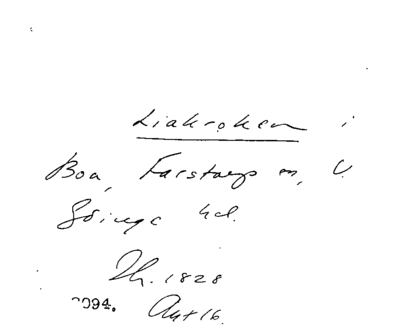 Liakroken i
Boa, Farstorp sn, V.
Göinge hd.
Th. 1828
2094. Ant 16.